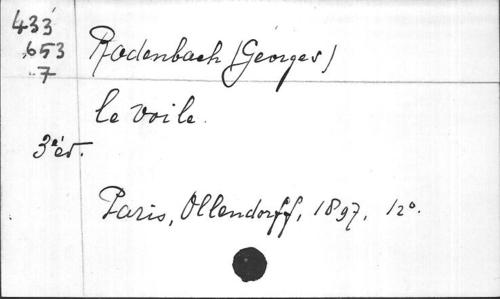 433
653
7
Rodenbach (Georges)
le voile.
3e éd.
Paris, Ollendorff, 1897, 12°.